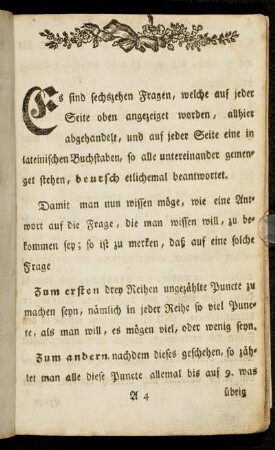 Es sind sechszehen Fragen, welche auf jeder
Seite oben angezeiget worden, allhier
abgehandelt, und auf jeder Seite eine in
lateinischen Buchstaben, so alle untereinander gemen-
get stehen, deutsch etlichemal beantwortet.
Damit man nun wissen möge, wie eine Ant-
wort auf die Frage, die man wissen will, zu be-
kommen sey; so ist zu merken, daß auf eine solche
Frage
Zum ersten drey Reihen ungezählte Puncte zu
machen seyn, nämlich in jeder Reihe so viel Punc-
te, als man will, es mögen viel, oder wenig seyn.
Zum andern, nachdem dieses geschehen, so zäh-
let man alle diese Puncte allemal bis auf 9. was
A 4
übrig